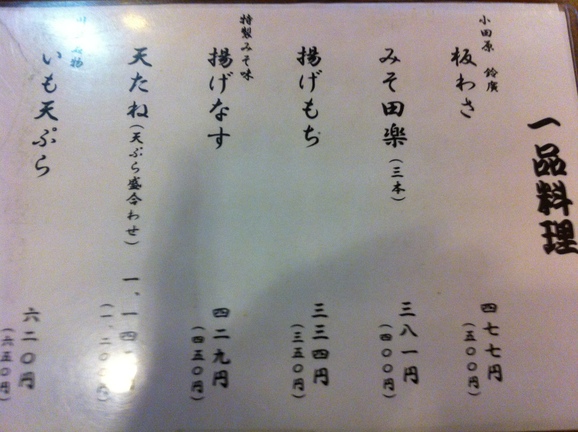 一品料理
小田原 鈴廣
板わさ
四七七円
(五〇〇円)
みそ田楽(三本)
三八一円
(四〇〇円)
揚げもち
三三四円
(三五〇円)
特製みそ味
揚げなす
四二九円
(四五〇円)
天たね(天ぷら盛合わせ)
一、一四
(一、二〇
いも天ぷら
六二〇円
(六五〇円)